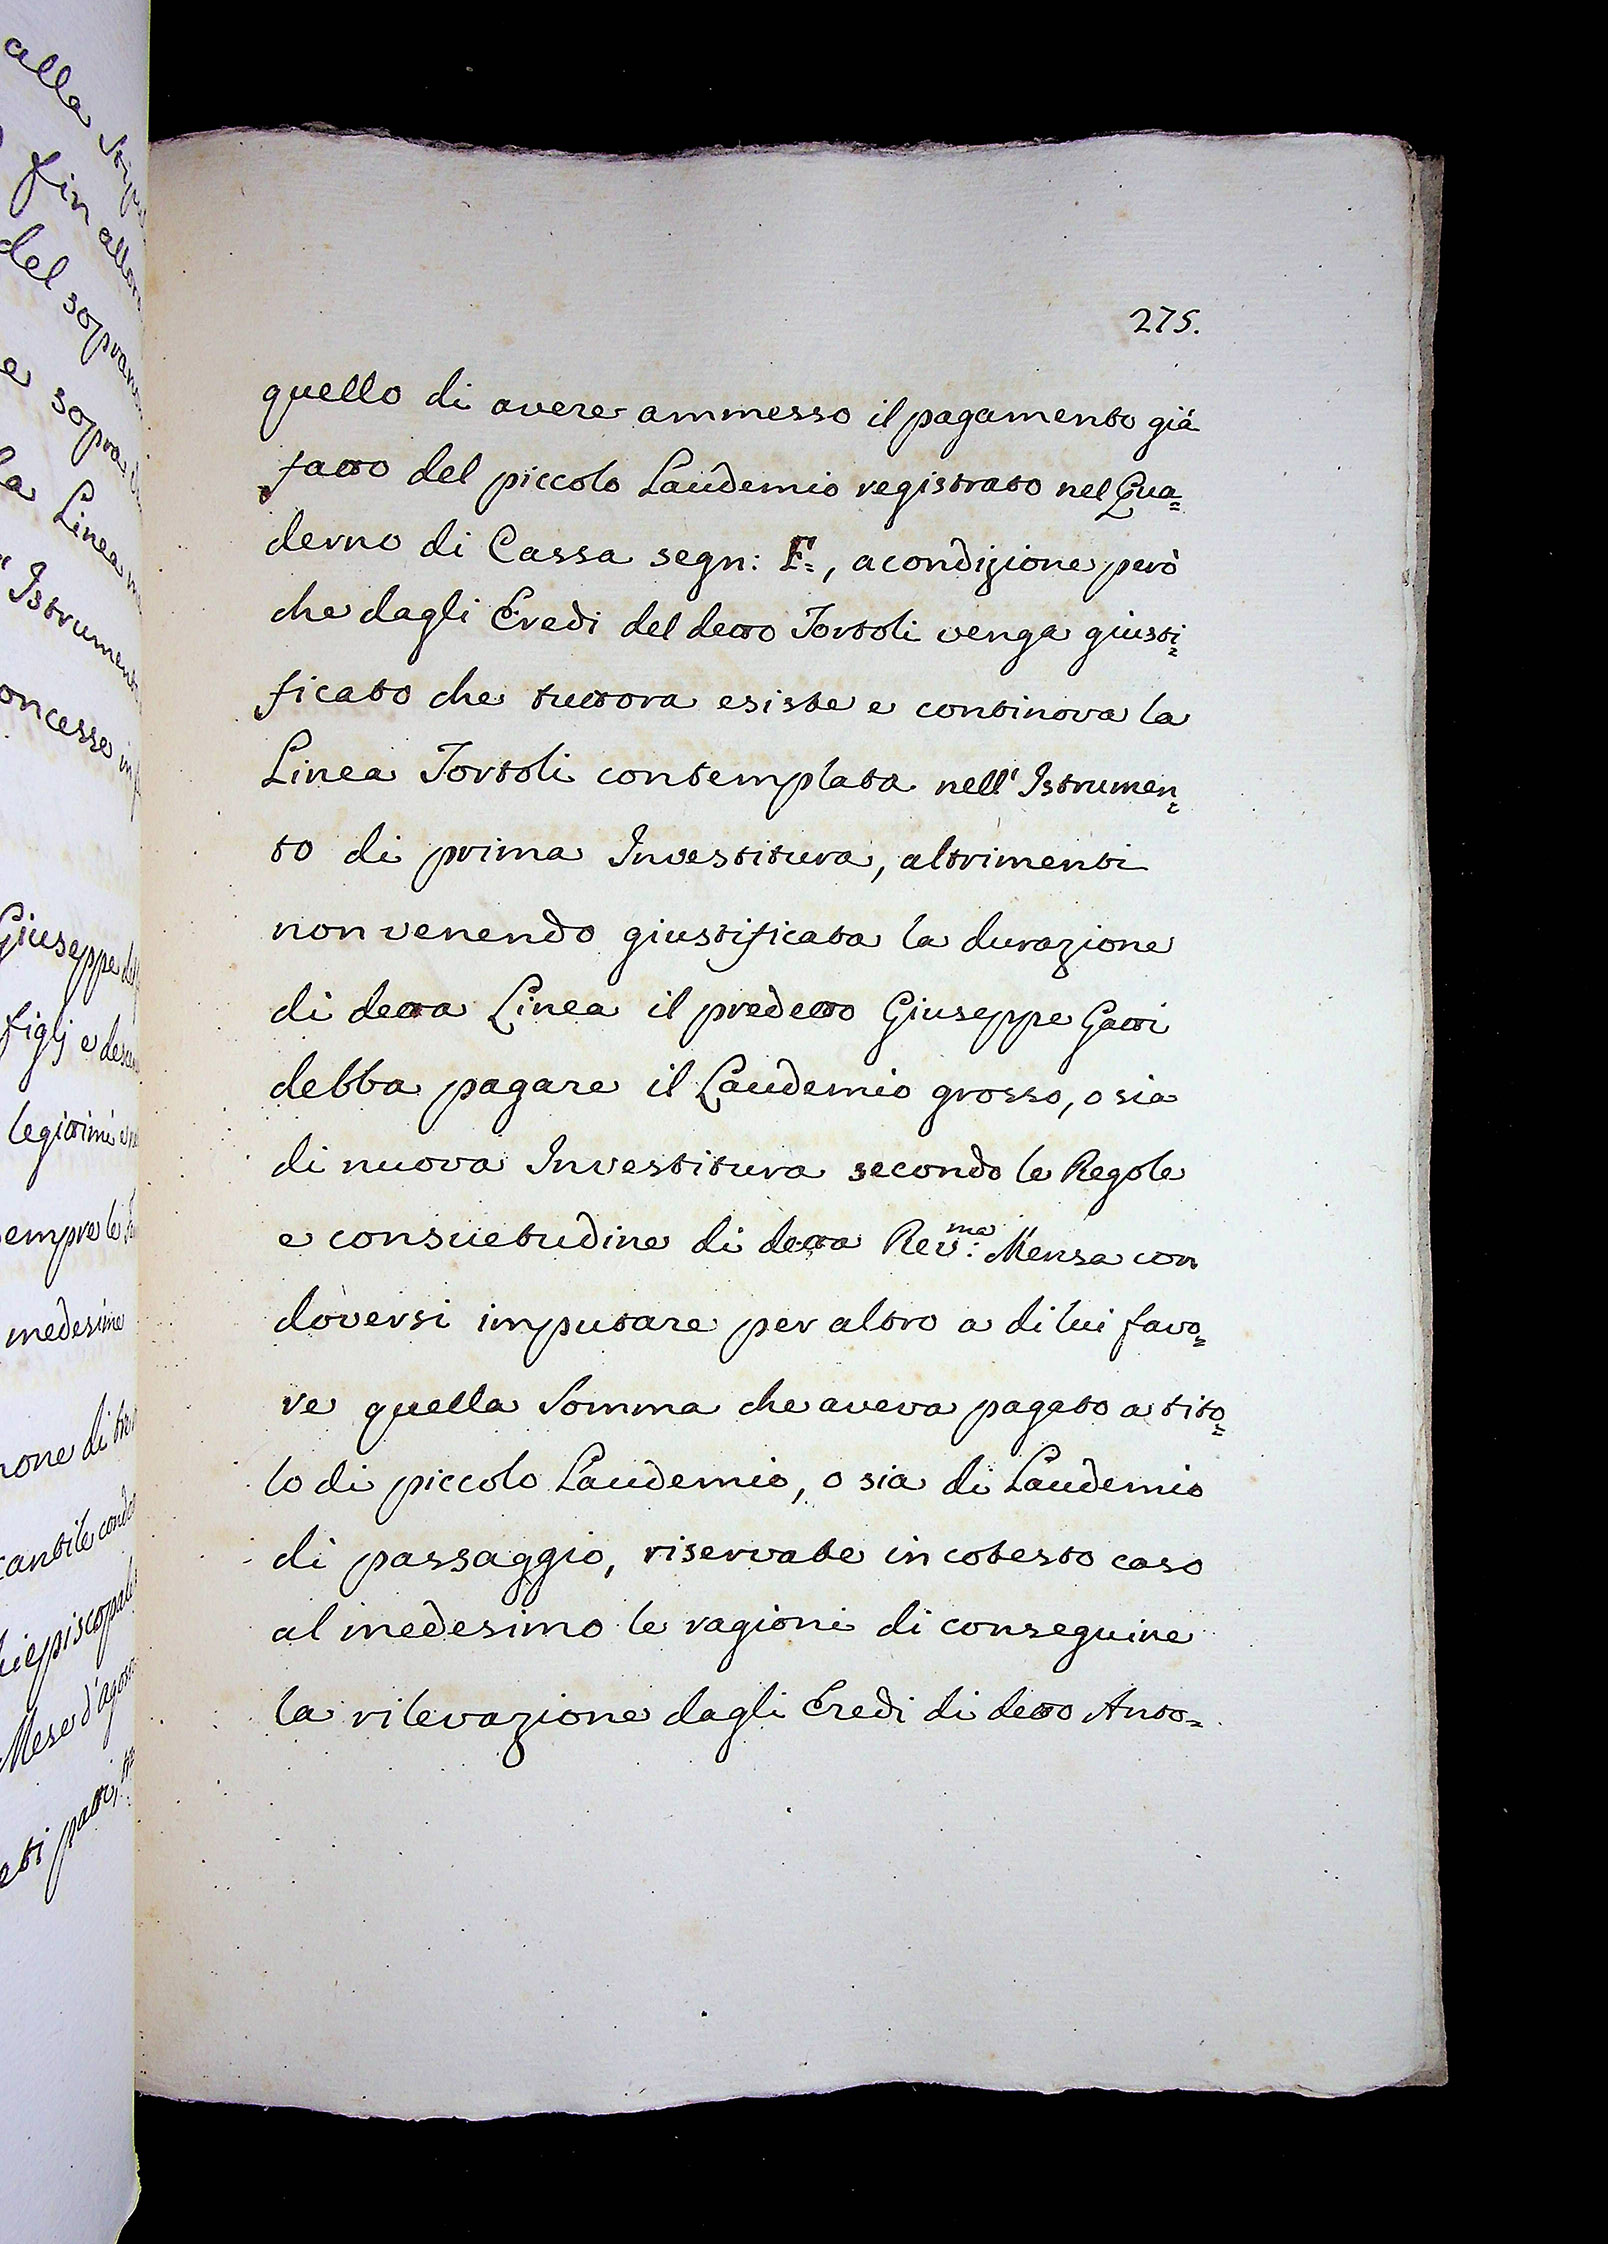 275.
quello di avere ammesso il pagamento già
fatto del piccolo Laudemio registrato nel Qua=
derno di Cassa segn: F=, a condizione però
che dagli Eredi del detto Tortoli venga giusti=
ficato che tuttora esiste e continova la
Linea Tortoli contemplata nell'Istrumen=
to di prima Investitura, altrimenti
non venendo giustificata la durazione
di detta Linea il predetto Giuseppe Gatti
debba pagare il Laudemio grosso, o sia
di nuova Investitura secondo le Regole
e consuetudine di detta Rev:ma Mensa con
doversi imputare per altro a di lui favo=
re quella Somma che aveva pagato a tito=
lo di piccolo Laudemio, o sia di Laudemio
di passaggio, riservate in cotesto caso
al medesimo le ragioni di conseguire
la rilevazione dagli Eredi di detto Anto=
alla
fin allora
del
e sopra
la Linea
Istrumento
Giuseppe
figlj e
legittimi
sempre le
medesime
Mese d'agosto